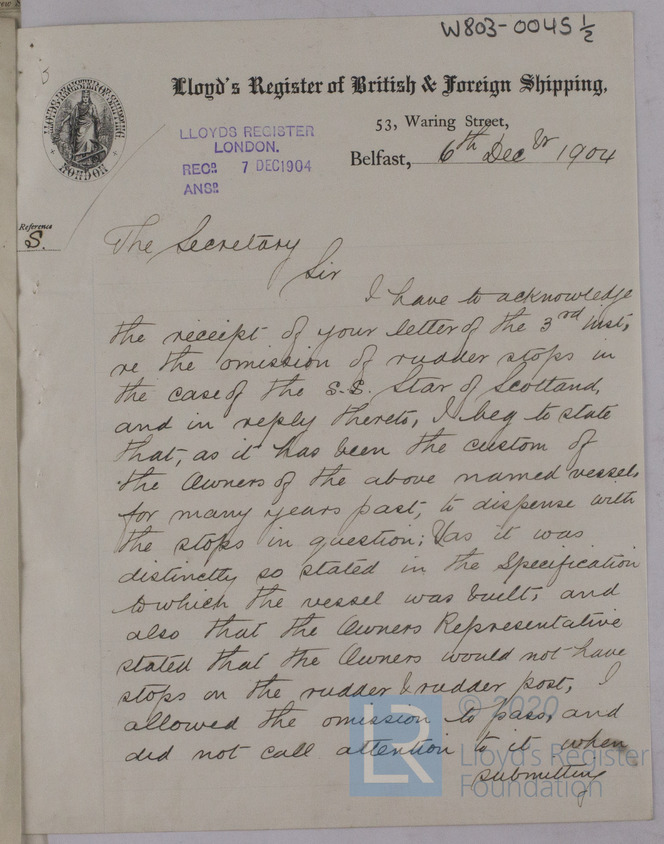 W803-0045 ½
Lloyd's Register of British & Foreign Shipping,
53, Waring Street,
Belfast, 6th Decr 1904
LLOYDS REGISTER
LONDON.
RECD. 7 DEC 1904
ANSD.
LLOYD'S REGISTER OF BRITISH & FOREIGN SHIPPING
LONDON
Reference
S.
The Secretary
Sir
I have to acknowledge
the receipt of your letter of the 3rd inst,
re the omission of rudder stops in
the case of the S.S. Star of Scotland,
and in reply thereto, I beg to state
that, as it has been the custom of
the Owners of the above named vessel,
for many years past, to dispense with
the stops in question; & as it was
distinctly so stated in the Specification
to which the vessel was built, and
also that the Owners Representative
stated that the Owners would not have
stops on the rudder & rudder post, I
allowed the omission to pass, and
did not call attention to it when
submitting
© 2020
LR
Lloyd's Register
Foundation